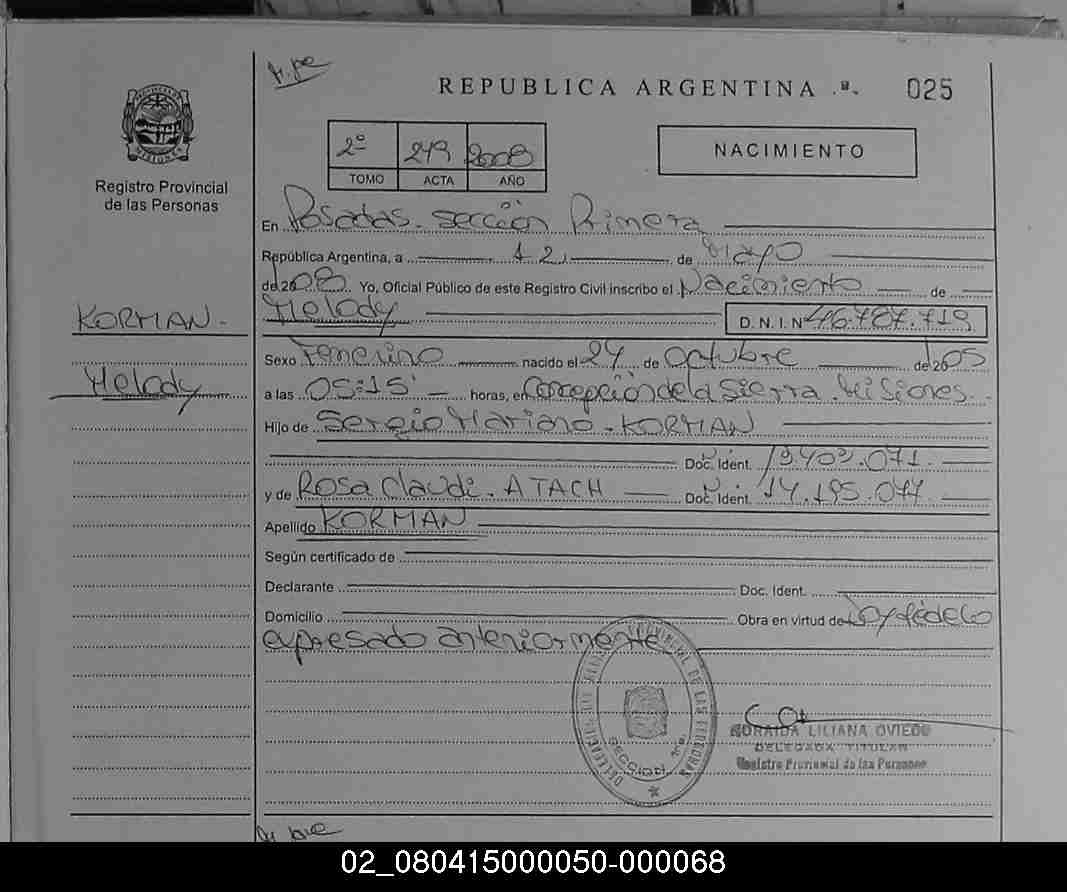 REPUBLICA ARGENTINA 025
2º 279 2008
TOMO ACTA AÑO
NACIMIENTO
Registro Provincial
de las Personas
En Posadas. Sección Primera
República Argentina, a 12 de Mayo
de 2008 Yo, Oficial Público de este Registro Civil inscribo el Nacimiento de
Melody
D.N.I. Nº 46.787.719
KORMAN
Melody
Sexo Femenino nacido el 27 de Octubre de 2005
a las 05:15 horas, en Concepción de la Sierra. Misiones
Hijo de Sergio Mariano KORMAN
Doc. Ident.
y de Rosa Claudi. ATACH Doc. Ident. 14.195.077
Apellido KORMAN
Según certificado de
Declarante Doc. Ident.
Domicilio Obra en virtud de Doy fé de lo
expresado anteriormente
SECCION 1ra.
ORAIDA LILIANA OVIEDO
DELEGADA TITULAR
Registro Provincial de las Personas
02_080415000050-000068